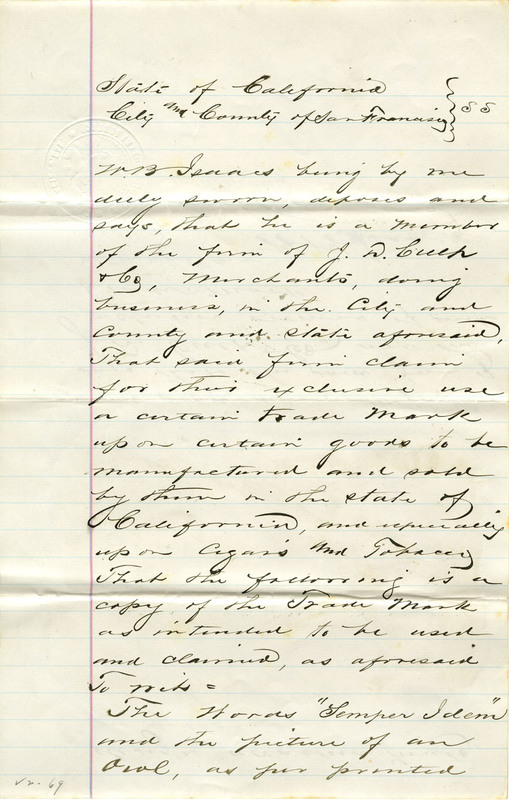 State of California
City and County of San Francisco } SS
W. B. Isaacs being by me
duly sworn, deposes and
says, that he is a member
of the firm of J. D. Culp
& Co, Merchants, doing
business, in the City and
County and State aforesaid,
That said firm claim
for their exclusive use
a certain trade Mark
upon certain goods to be
manufactured and sold
by them in the State of
California, and especially
upon Cigars and Tobacco
That the following is a
copy of the Trade Mark
as intended to be used
and claimed, as aforesaid
To wit =
The Words "Semper Idem"
and the picture of an
Owl, as per printed